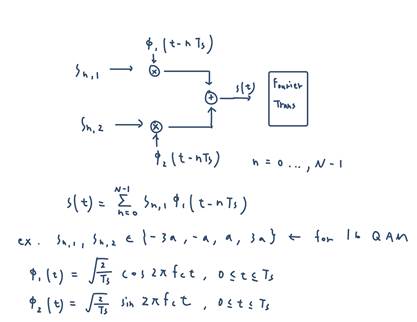 ϕ₁(t-nTs)
Sn,1
S(t)
Fourier
Trans
Sn,2
ϕ₂(t-nTs)
n = 0 ..., N-1
S(t) = ∑_{n=0}^{N-1} Sn,1 ϕ₁(t-nTs)
ex. Sn,1, Sn,2 ∈ {-3a, -a, a, 3a} ← for 16 QAM
ϕ₁(t) = √(2/Ts) cos 2πfct, 0≤t≤Ts
ϕ₂(t) = √(2/Ts) sin 2πfct, 0≤t≤Ts